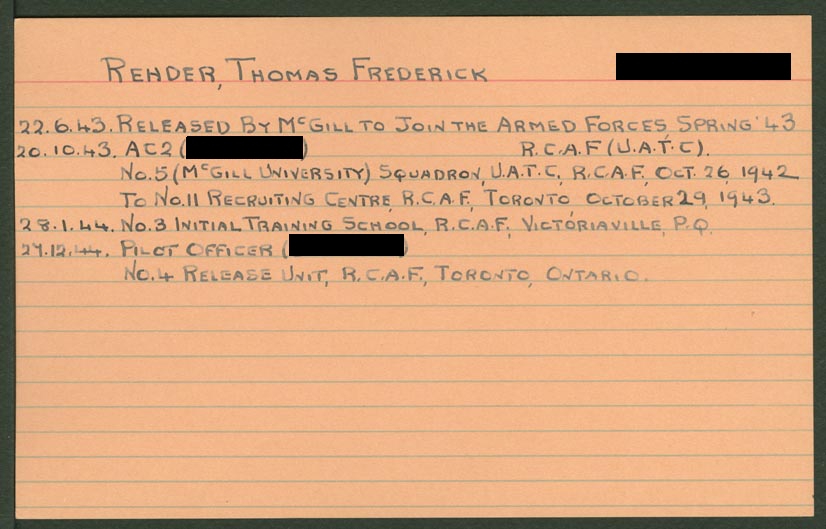 REHDER, THOMAS FREDERICK
22.6.43. RELEASED BY McGILL TO JOIN THE ARMED FORCES, SPRING '43
20.10.43. AC2 ( ) R.C.A.F (U.A.T.C).
No.5 (McGILL UNIVERSITY) SQUADRON, U.A.T.C, R.C.A.F, OCT. 26, 1942
TO No.11 RECRUITING CENTRE, R.C.A.F, TORONTO OCTOBER 29, 1943.
28.1.44. No.3 INITIAL TRAINING SCHOOL, R.C.A.F, VICTORIAVILLE, P.Q.
27.12.44. PILOT OFFICER ( )
No.4 RELEASE UNIT, R.C.A.F, TORONTO, ONTARIO.